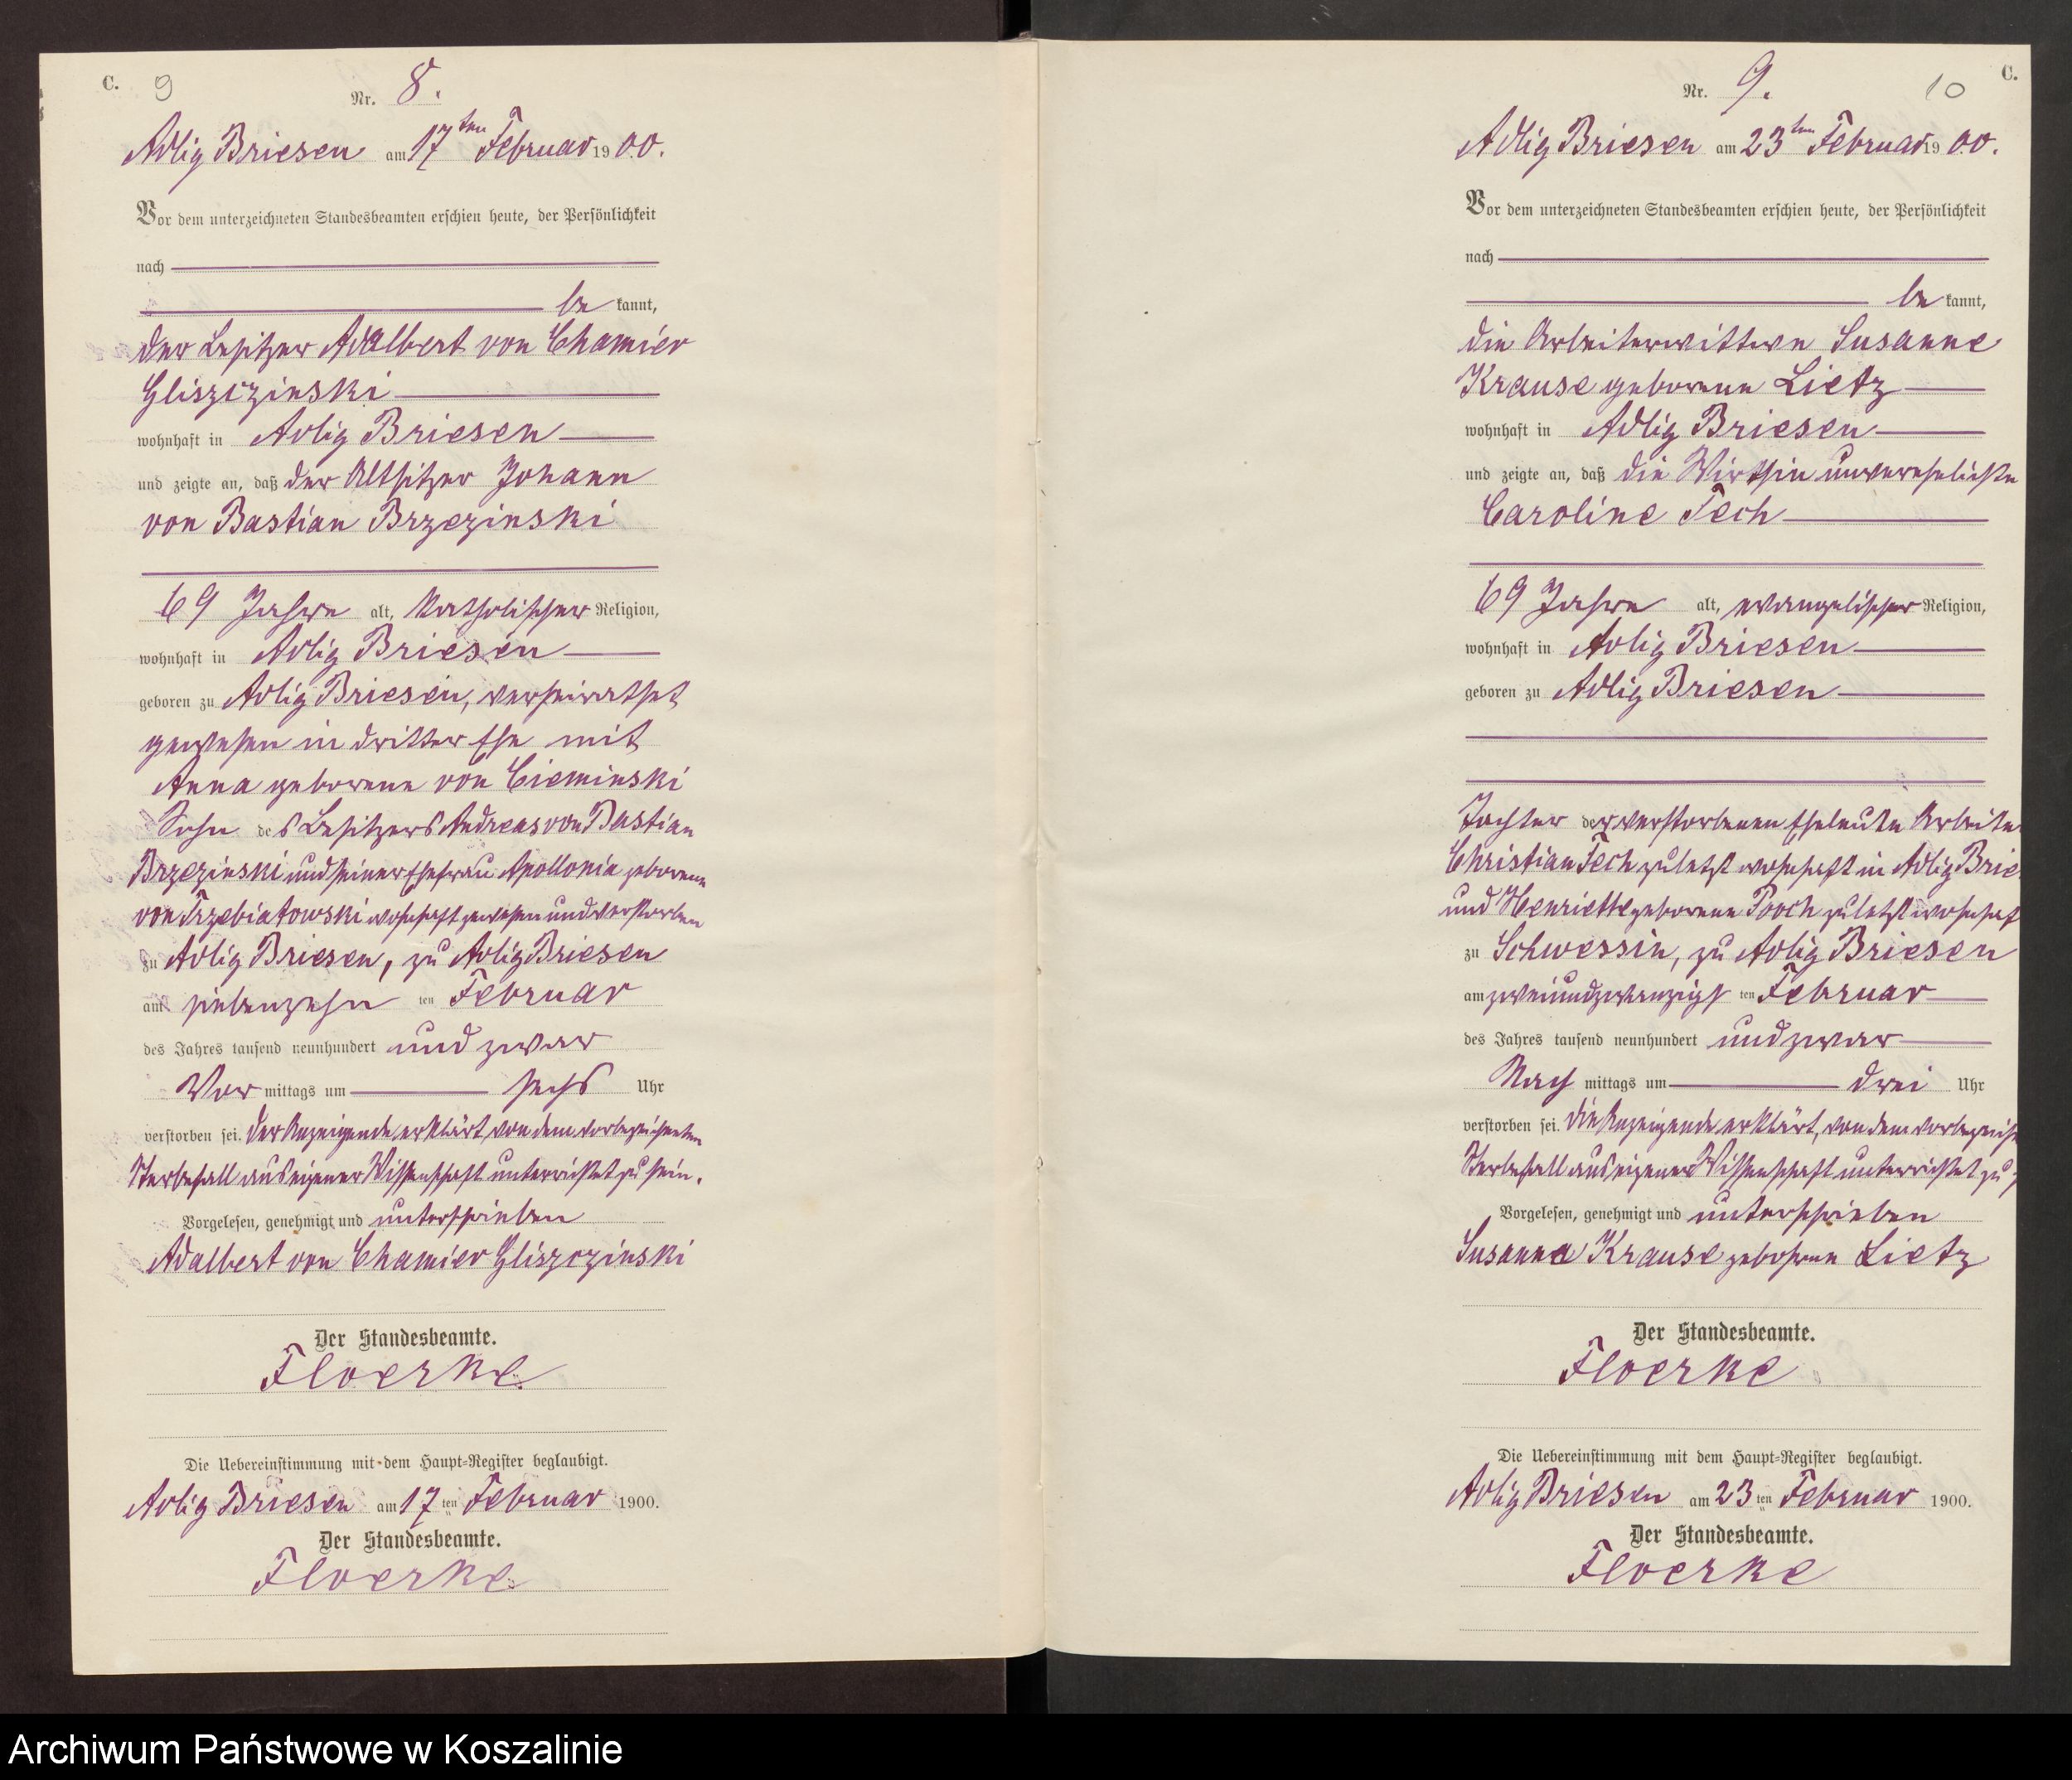 C. 9
Nr. 8.
Adlig Briesen am 17ten Februar 1900.
Vor dem unterzeichneten Standesbeamten erschien heute, der Persönlichkeit
nach
be kannt,
der Besitzer Adalbert von Chamier
Gliszczinski
wohnhaft in Adlig Briesen
und zeigte an, daß der Altsitzer Johann
von Bastian Brzezinski
69 Jahre alt, katholischer Religion,
wohnhaft in Adlig Briesen
geboren zu Adlig Briesen, verheirathet
gewesen in dritter Ehe mit
Anna geborene von Cieminski
Sohn des Besitzers Andreas von Bastian
Brzezinski und seiner Ehefrau Apollonia geborene
von Trzebiatowski wohnhaft gewesen und verstorben
zu Adlig Briesen, zu Adlig Briesen
am siebenzehn ten Februar
des Jahres tausend neunhundert und zwar
Vor mittags um sechs Uhr
verstorben sei. Der Anzeigende erklärt, von dem vorbezeichneten
Sterbefall aus eigener Wissenschaft unterrichtet zu sein.
Vorgelesen, genehmigt und unterschrieben
Adalbert von Chamier Gliszczinski
Der Standesbeamte.
Floerke
Die Uebereinstimmung mit dem Haupt-Register beglaubigt.
Adlig Briesen am 17 ten Februar 1900.
Der Standesbeamte.
Floerke
10 C.
Nr. 9.
Adlig Briesen am 23ten Februar 1900.
Vor dem unterzeichneten Standesbeamten erschien heute, der Persönlichkeit
nach
be kannt,
die Arbeiterwittwe Susanne
Krause geborene Lietz
wohnhaft in Adlig Briesen
und zeigte an, daß die Wirthin unverehelichte
Caroline Tech
69 Jahre alt, evangelischer Religion,
wohnhaft in Adlig Briesen
geboren zu Adlig Briesen
Tochter der verstorbenen Eheleute Arbeite
Christian Tech zuletzt wohnhaft in Adlig Brie
und Henriette geborene Pooch zuletzt wohnhaft
zu Schwessin, zu Adlig Briesen
am zweiundzwanzigs ten Februar
des Jahres tausend neunhundert und zwar
Nach mittags um drei Uhr
verstorben sei. Die Anzeigende erklärt, von dem vorbezeich
Sterbefall aus eigener Wissenschaft unterrichtet zu
Vorgelesen, genehmigt und unterschrieben
Susanna Krause geborene Lietz
Der Standesbeamte.
Floerke
Die Uebereinstimmung mit dem Haupt-Register beglaubigt.
Adlig Briesen am 23 ten Februar 1900.
Der Standesbeamte.
Floerke
Archiwum Państwowe w Koszalinie